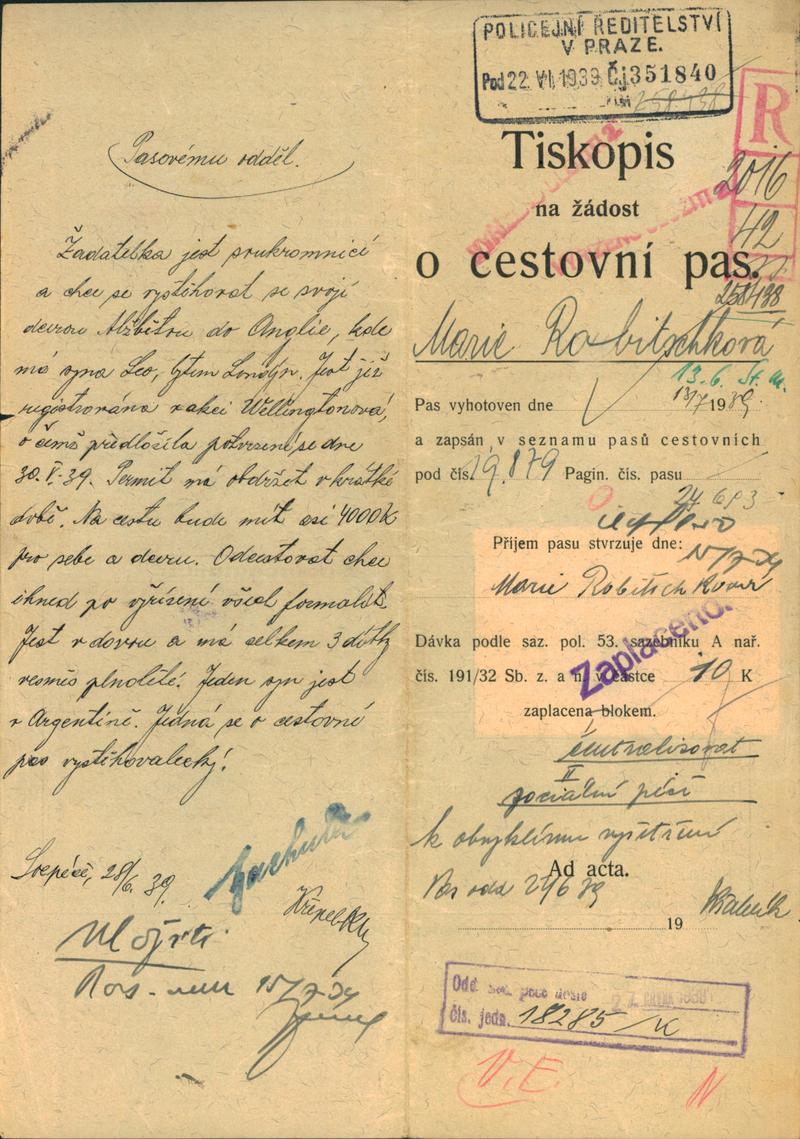 Pasovému odděl.
Žadatelka jest soukromnicí
a chce se vystěhovat se svojí
dcerou Alžbětou do Anglie, kde
má syna Leo, bytem Londýn. Jest již
registrována v akci Wellingtonová,
o čemž předložila potvrzení ze dne
30.V.39. Permit má obdržet v krátké
době. Na cestu bude mít asi 4000K
pro sebe a dceru. Odcestovat chce
ihned po vyřízení všech formalit.
Jest vdovou a má celkem 3 dítky
vesměs plnoleté. Jeden syn jest
v Argentině. Jedná se o cestovní
pas vystěhovalecký!
28/6. 39.
15/7 39
POLICEJNÍ ŘEDITELSTVÍ
V PRAZE.
Pod 22. VI. 1939 Čj 351840
258438
R
Tiskopis
2016
na žádost
42
o cestovní pas.
258438
Marie Robitschková
13.6.
Pas vyhotoven dne 13/7 1939.
a zapsán v seznamu pasů cestovních
pod čís. 19.879 Pagin. čís. pasu
24693
Příjem pasu stvrzuje dne:
Marie Robitschková
Zaplaceno.
Dávka podle saz. pol. 53. sazebníku A nař.
čís. 191/32 Sb. z. a n. v částce 10 K
zaplacena blokem.
centralisovat
II
sociální péči
k obvyklému vyšetření
Ad acta.
19
čís. jedn. 18285/K
V.E.
N